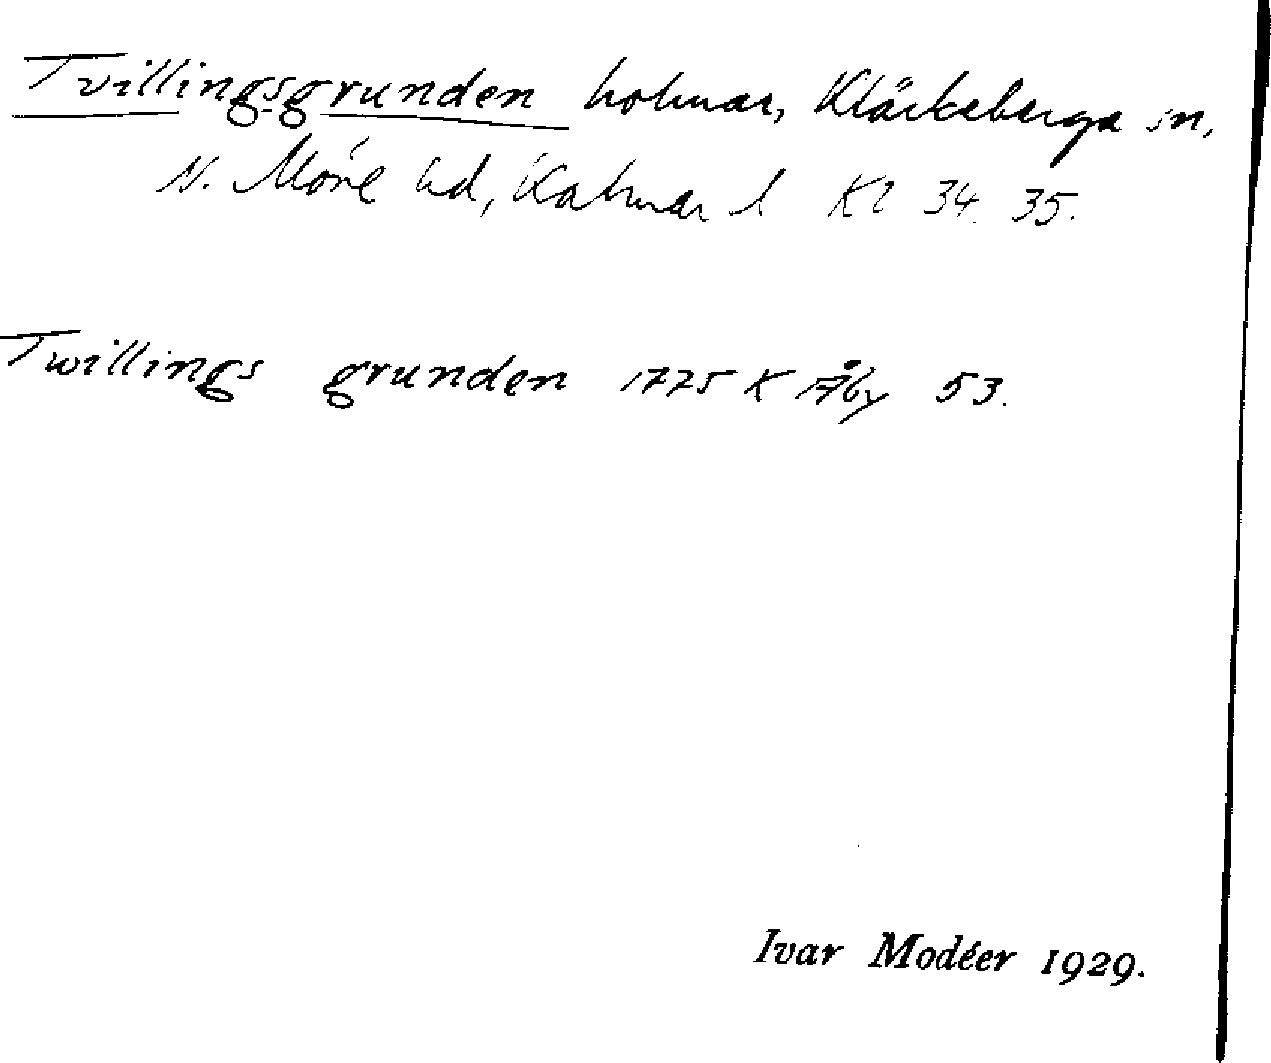 Tvillingsgrunden holmar, Kläckeberga sn,
N. Möre hd, Kalmar l Kl 34. 35.
Twillings grunden 1775 K Åby 53.
Ivar Modéer 1929.